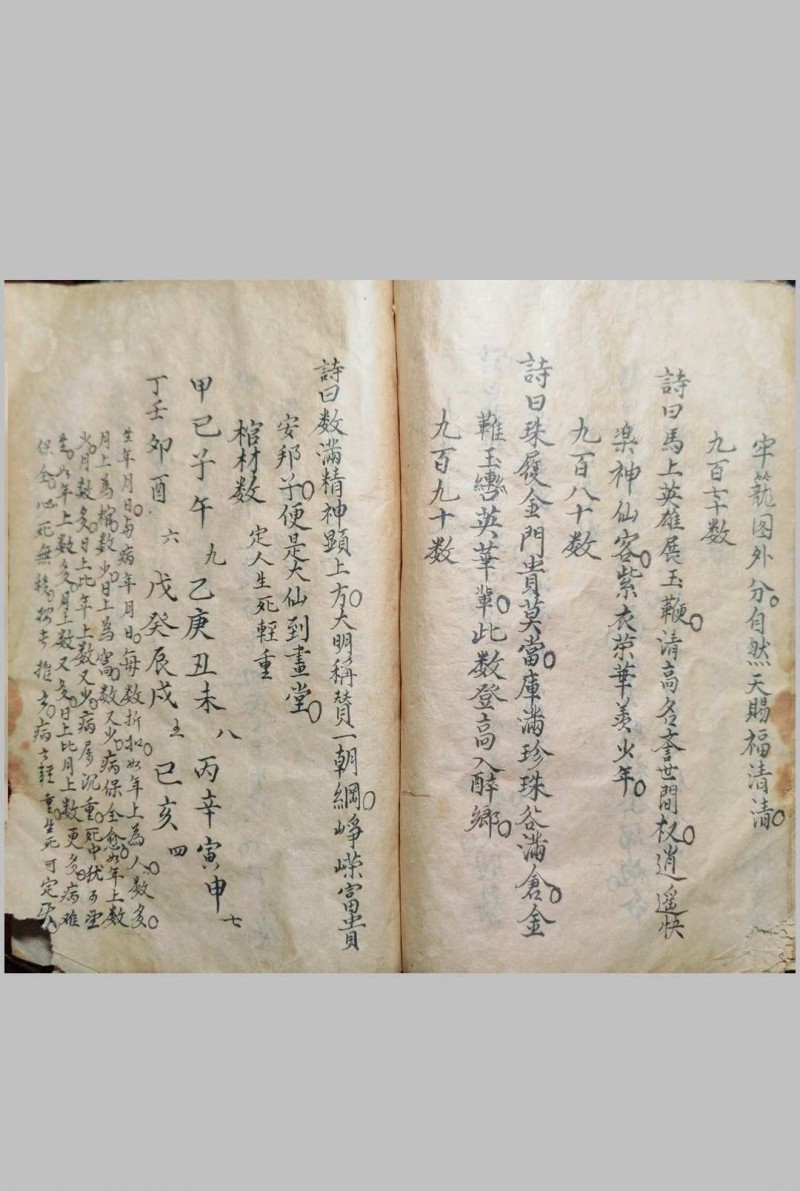 牢籠图外分。自然天賜福清清。
九百七十数
詩曰馬上英雄展玉鞭。清高名誉世間权。逍遥快
楽神仙客。紫衣荣華羡少年。
九百八十数
詩曰珠履金門貴莫當。庫滿珍珠谷滿倉。金
鞍玉轡英華輩。此数登高入醉鄉。
九百九十数
詩曰数滿精神顕上方。大明稱賛一朝綱。崢嶸富貴
安邦子。便是大仙到畫堂。
棺材数 定人生死輕重
甲己子午九 乙庚丑未八 丙辛寅申七
丁壬卯酉六 戊癸辰戌五 巳亥四
生年月日。与病年月日。每数折扣。如年上為人。数多。
月上為棺。数少。日上為窩。数又少。病保全愈。如年上数
少。月数多。日上比年上数又少。病房沉重。死中扰可望
生。如年上数多。月上数又多。日上比月上数更多。病难
保命。必死無移。按去推去。病之輕重。生死可定矣。